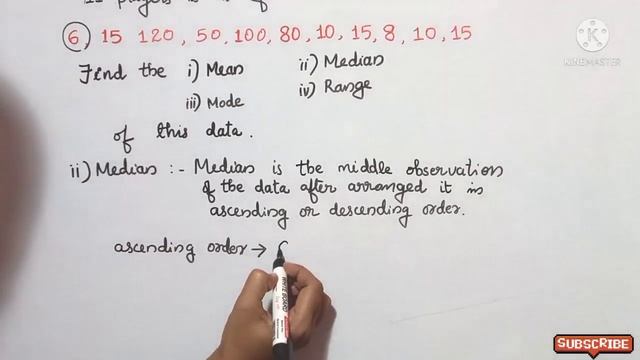 6) 15 120, 50, 100, 80, 10, 15, 8, 10, 15
Find the i) Mean ii) Median
iii) Mode iv) Range
of this data.
ii) Median :- Median is the middle observation
of the data after arranged it in
ascending or descending order.
ascending order →
KINEMASTER
WHITE BOARD
SUBSCRIBE